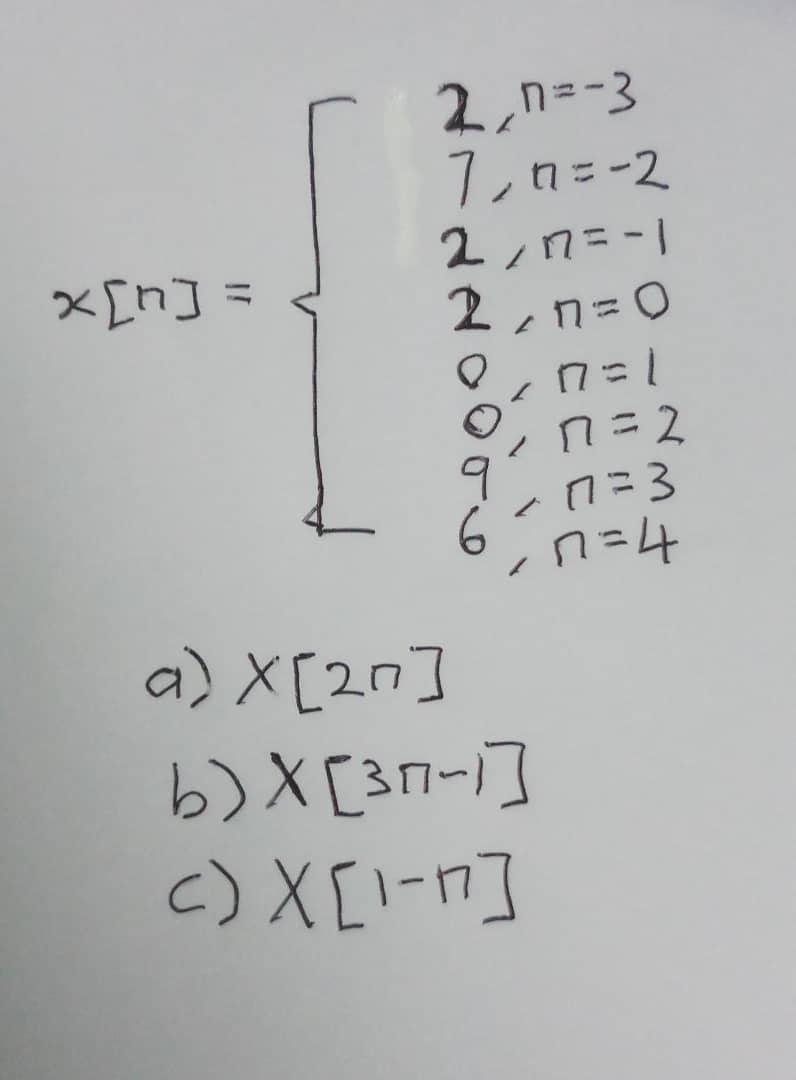 2, n=-3
7, n=-2
2, n=-1
x[n] = 2, n=0
0, n=1
0, n=2
9, n=3
6, n=4
a) X[2n]
b) X[3n-1]
c) X[1-n]